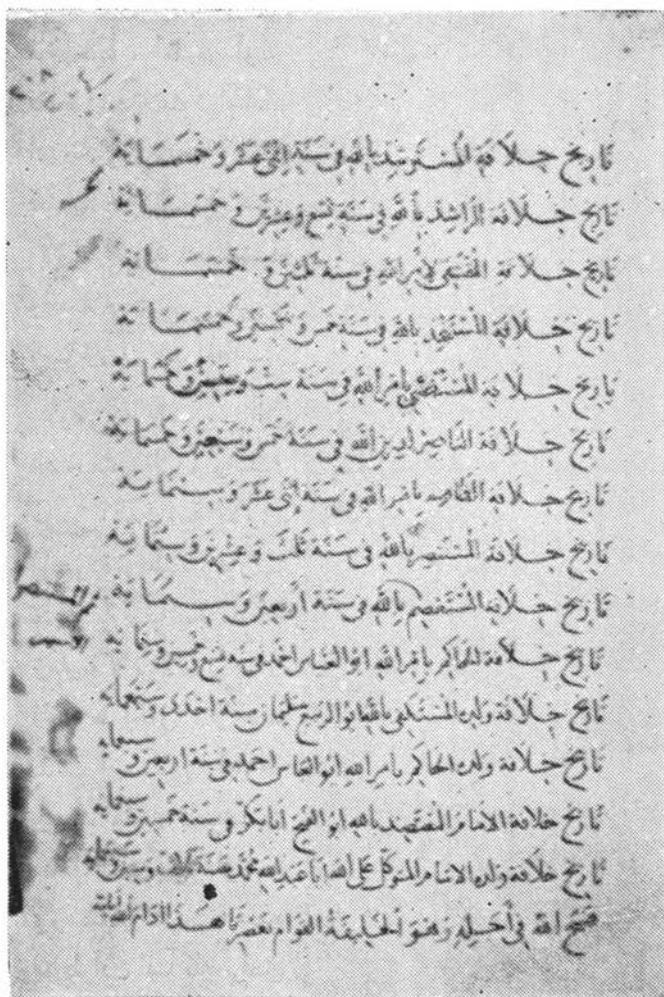 تاريخ خلافة المسترشد بالله في سنة اثنى عشر وخمسماية
تاريخ خلافة الراشد بالله في سنة تسع وعشرين وخمسماية
تاريخ خلافة المقتفى لامر الله في سنة ثلثين وخمسماية
تاريخ خلافة المستنجد بالله في سنة خمس وخمسين وخمسماية
تاريخ خلافة المستضى بامر الله في سنة ست وستين وخمسماية
تاريخ خلافة الناصر لدين الله في سنة خمس وسبعين وخمسماية
تاريخ خلافة الظاهر بامر الله في سنة اثنى عشر وستماية
تاريخ خلافة المستنصر بالله في سنة ثلث وعشرين وستماية
تاريخ خلافة المستعصم بالله في سنة اربعين وستماية
تاريخ خلافة الحاكم بامر الله ابو العباس احمد في سنة تسع وخمسين وستماية
تاريخ خلافة ولده المستكفي بالله ابو الربيع سليمان سنة احدى وسبعماية
تاريخ خلافة ولده الحاكم بامر الله ابو العباس احمد في سنة اربعين وسبعماية
تاريخ خلافة الامام المعتضد بالله ابو الفتح ابا بكر في سنة خمسين وسبعماية
تاريخ خلافة ولده الامام المتوكل على الله ابا عبد الله محمد سنة ثلاث وستين وسبعماية
فسح الله في اجله وهو الخليفة القوام بعصرنا هذا ادام الله